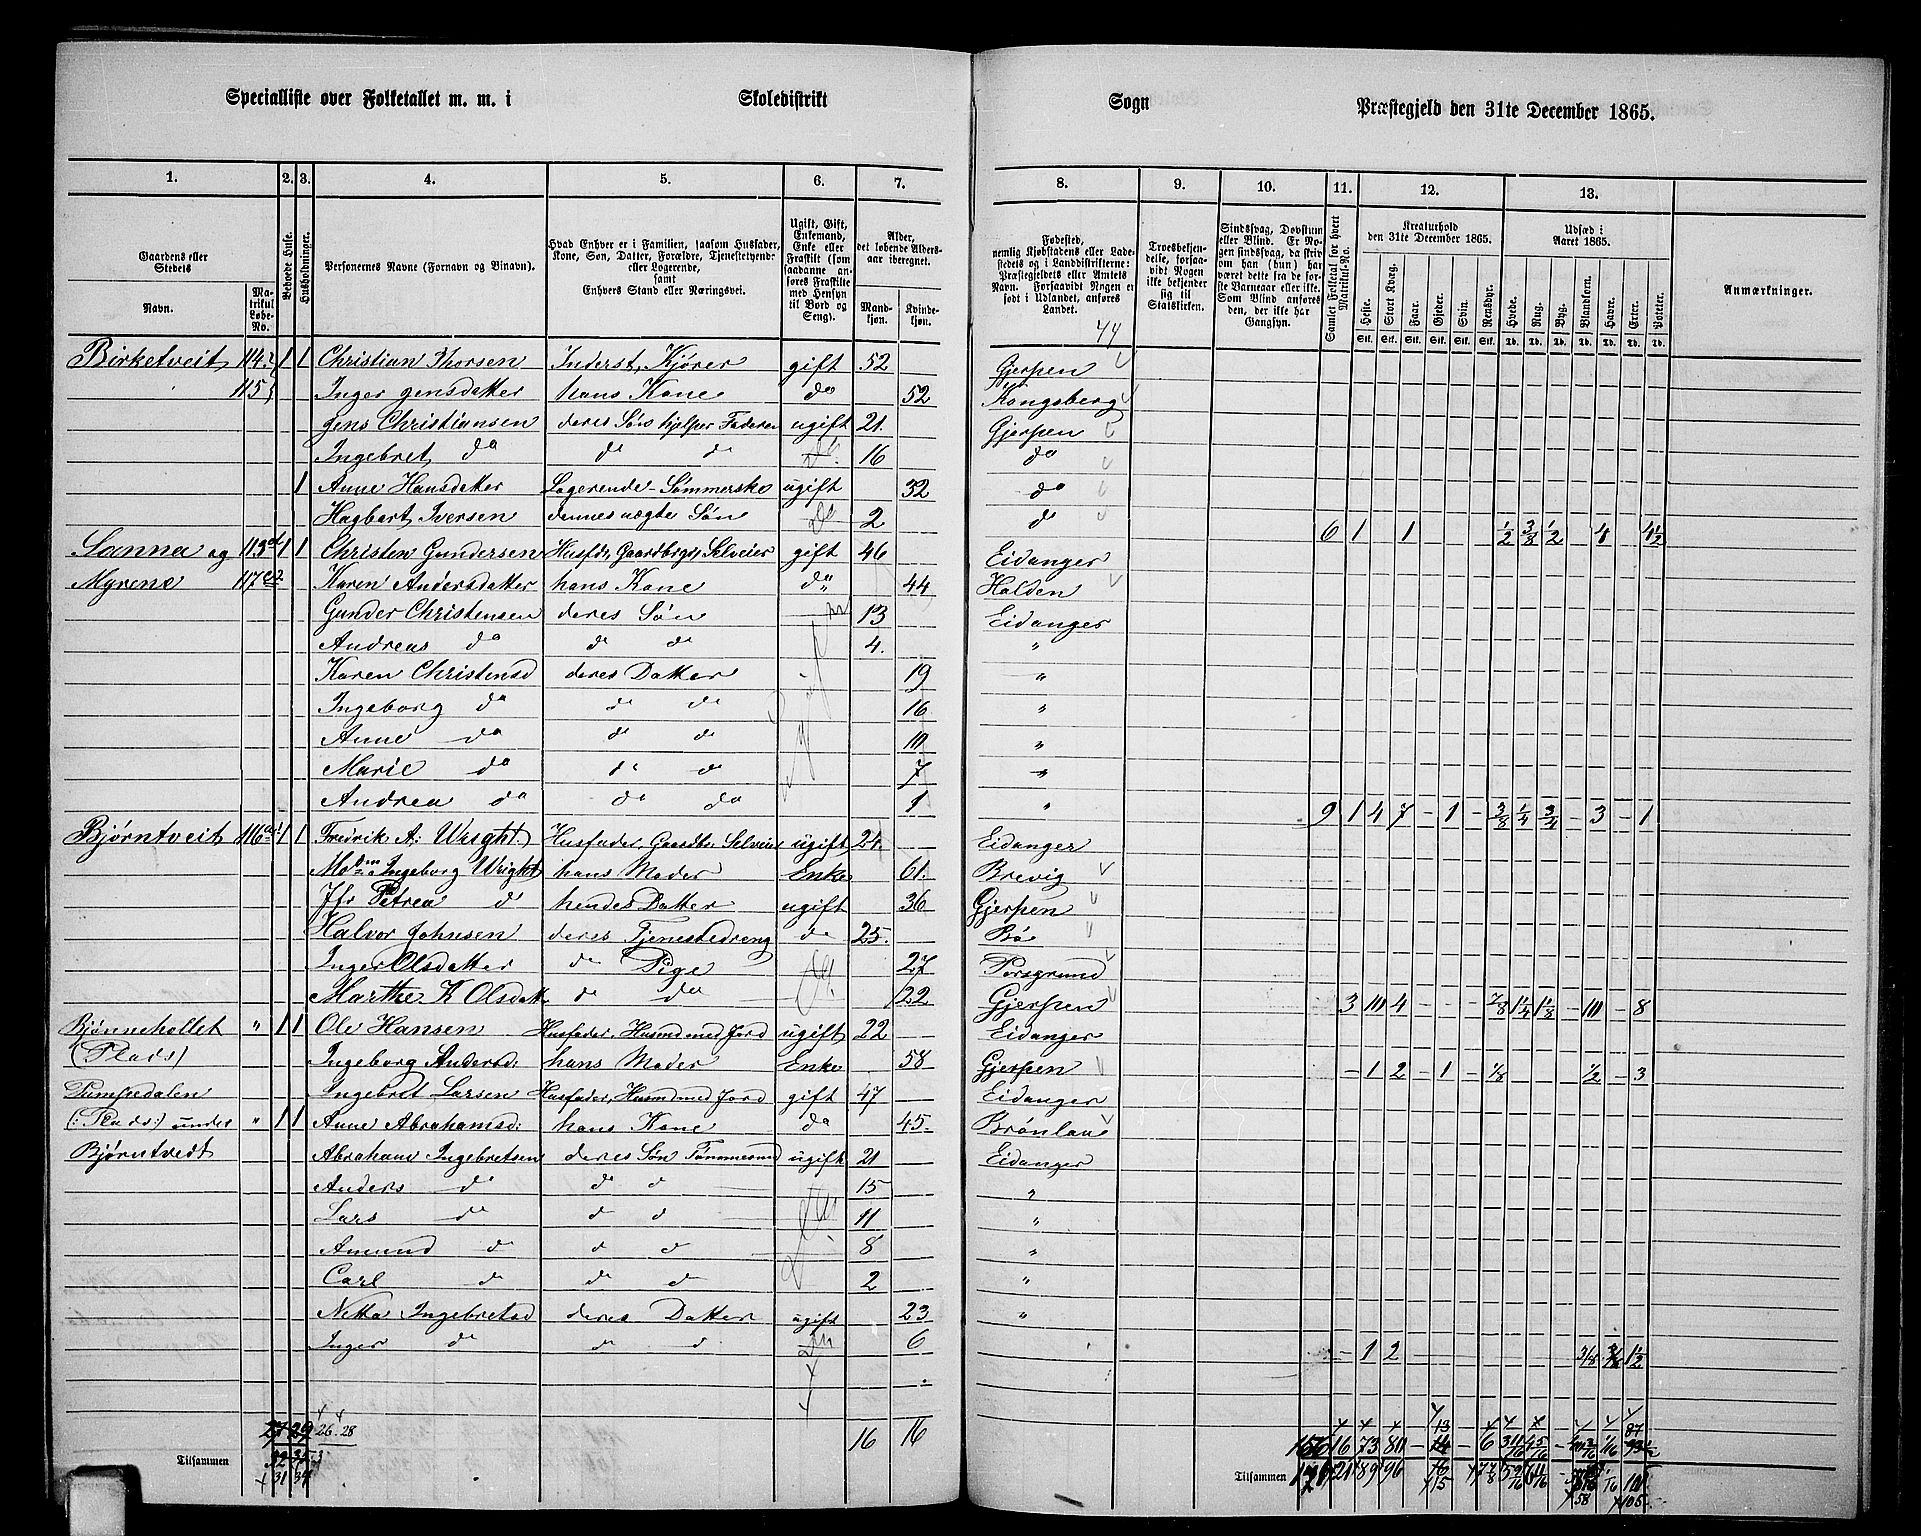 Specialliste over Folketallet m. m. i Skoledistrikt Sogn Præstegjeld den 31te December 1865.
1. 2. 3. 4. 5. 6. 7. 8. 9. 10. 11. 12. 13.
Gaardens eller Stedets
Navn.
Matrikul Løbe-No.
Beboede Huse.
Husholdninger.
Personernes Navne (Fornavn og Binavn).
Hvad Enhver er i Familien, saasom Husfader, Kone, Søn, Datter, Forældre, Tjenestetyende eller Logerende, samt Enhvers Stand eller Næringsvei.
Ugift, Gift, Enkemand, Enke eller Fraskilt (som saadanne anføres Fraskilte med Hensyn til Bord og Seng).
Alder, det løbende Aldersaar iberegnet.
Mandkjøn.
Kvindekjøn.
Fødested, nemlig Kjøbstadens eller Ladestedets og i Landdistrikterne: Præstegjeldets eller Amtets Navn. Forsaavidt Nogen er født i Udlandet, anføres Landet.
44
Troesbekjendelse, forsaavidt Nogen ikke bekjender sig til Statskirken.
Sindssvag, Døvstum eller Blind. Er Nogen sindssvag, da skriv om han (hun) har været dette fra de første Barneaar eller ikke. Som Blind anføres den, der ikke har Gangsyn.
Samlet Folketal for hvert Matrikul-No.
Kreaturhold den 31te December 1865.
Heste. Stort Kvæg. Faar. Gjeder. Svin. Rensdyr.
Udsæd i Aaret 1865.
Hvede. Rug. Byg. Blandkorn. Havre. Erter. Poteter.
Anmærkninger.
Birketveit 114 1 1 Christian Thorsen Inderst, Kjører gift 52 Gjerpen
115 Inger Jensdatter hans Kone do 52 Kongsberg
Jens Christiansen deres Søn hjelper Faderen ugift 21. Gjerpen
Ingebret do do do 16 do
1 Anne Hansdatter Logerende - Sømmerske ugift 32 do
Hagbart Iversen dennes uægte Søn do 2 do 6 1 1 1/2 3/8 1/2 4 4 1/2
Sanna og 113 1 1 Christen Gundersen Husfdr, Gaardbrgr, Selveier gift 46 Eidanger
Myrene 117 Karen Andersdatter hans Kone do 44 Halden
Gunder Christensen deres Søn 13 Eidanger
Andreas do do do 4. "
Karen Christensd deres Datter 19 "
Ingeborg do do do 16 "
Anne do do do 10 "
Marie do do do 7 "
Andrea do do do 1 " 9 1 4 7 - 1 - 3/8 1/4 3/4 - 3 - 1
Bjørntveit 116 1 1 Fredrik A: Wright. Husfader, Gaardbr. Selveier ugift 24. Eidanger
Ingeborg Wright hans Moder Enke 61. Brevig
Jfr Petrea do hendes Datter ugift 36 Gjerpen
Halvor Johnsen deres Tjenestedreng do 25. Bø
Inger Olsdatter do Pige 27 Porsgrund
Marthe K Olsdatt do do 22 Gjerpen 3 10 4 - - - 7/8 1 1/4 1 1/8 - 10 - 8
Bjønneholtet " 1 1 Ole Hansen Husfader, Husmd med Jord ugift 22 Eidanger
(Plads) Ingeborg Andersd: hans Moder Enke 58 Gjerpen - 1 2 - 1 - 1/8 1/2 - 3
Pumpedalen Ingebret Larsen Husfader, Husmd med Jord gift 47 Eidanger
(: Plads:) under " 1 1 Anne Abrahamsd: hans Kone do 45. Brønlan
Bjørntvedt Abraham Ingebretsen deres Søn Tømmermd ugift 21 Eidanger
Anders do do do 15 "
Lars do do do 11 "
Amund do do do 8 "
Carl do do do 2 "
Netta Ingebretsd deres Datter ugift 23 "
Inger do do do 6 - 1 2 3/8 1 1/2
Tilsammen 26. 28 16 16
31 34
Tilsammen